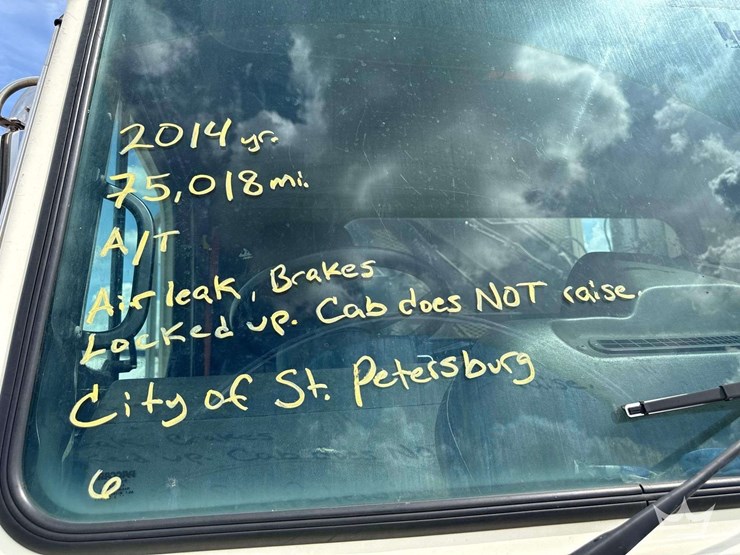 2014 yr.
75,018 mi.
A/T
Air leak, Brakes
Locked up. Cab does NOT raise.
City of St. Petersburg
6